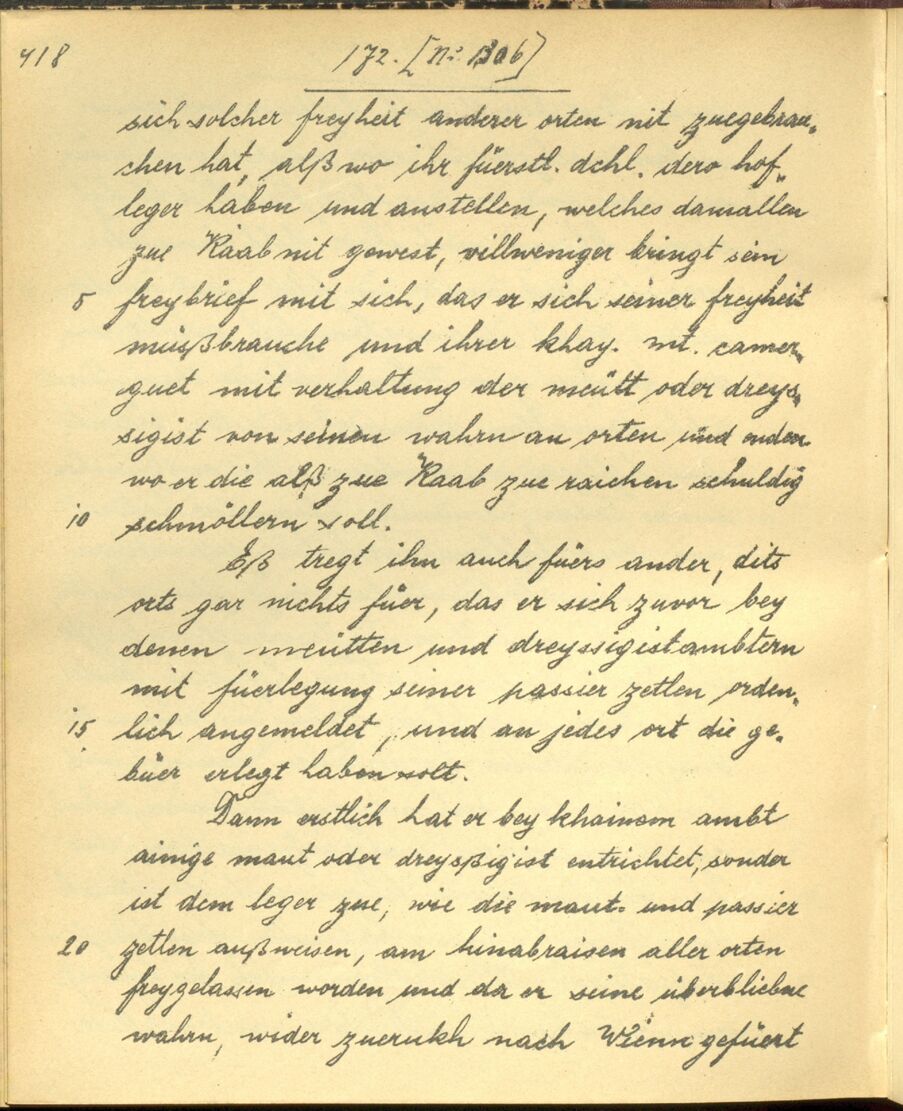 418
172. [No. 1306]
sich solcher freyheit anderer orten nit zuegebrau„
chen hat, alß wo ihr füerstl. dchl. dero hof„
leger haben und anstellen, welches damallen
zue Raab nit gewest, villweniger bringt sein
5 freybrief mit sich, das er sich seiner freyheit
müßbrauche und ihrer khay. mt. camer„
guet mit verhaltung der meütt oder dreys„
sigist von seinen wahrn an orten und enden
wo er die alß zue Raab zue raichen schuldig
10 schmöllern soll.
Eß tregt ihn auch füers ander, dits
orts gar nichts füer, das er sich zuvor bey
denen meütten und dreyssigistambtern
mit füerlegung seiner passier zetlen orden„
15 lich angemeldet, und an jedes ort die ge„
büer erlegt haben solt.
Dann erstlich hat er bey khainem ambt
ainige maut oder dreysßigist entrichtet, sonder
ist dem leger zue, wie die maut- und passier
20 zetlen außweisen, am hinabraisen aller orten
freygelassen worden und da er seine überbliebne
wahrn, wider zuerukh nach Wienn gefüert